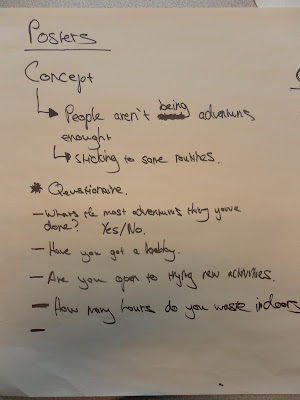 Posters
Concept
People aren't being adventurus
enought
sticking to same routites.
* Qeustionaire.
- Whats the most adventurus thing youve
done? Yes/No.
- Have you got a hobby.
- Are you open to trying new activities.
- How many hours do you waste indoors
-